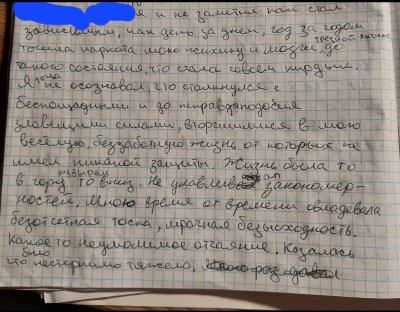 я и не заметил как стал
зависимым, как день за днем, год за годом
трезвой жизни
точила наркота мою психику и мозги, до
такого состояния, что стала совсем кирдык.
тогда
Я не осознавал, что столкнулся с
беспощадными и до неправдоподобия
зловещими силами, вторгшимися в мою
веселую, беззаботную жизнь от которых не
имел никакой защиты. Жизнь была то
кувырком
в гору то вниз. Не улавливал закономер-
ностей. Мною время от времени овладевала
безотчетная тоска, мрачная безысходность.
Какое то неумолимое отчаяние. Казалась
было
что нестерпимо тяжело.